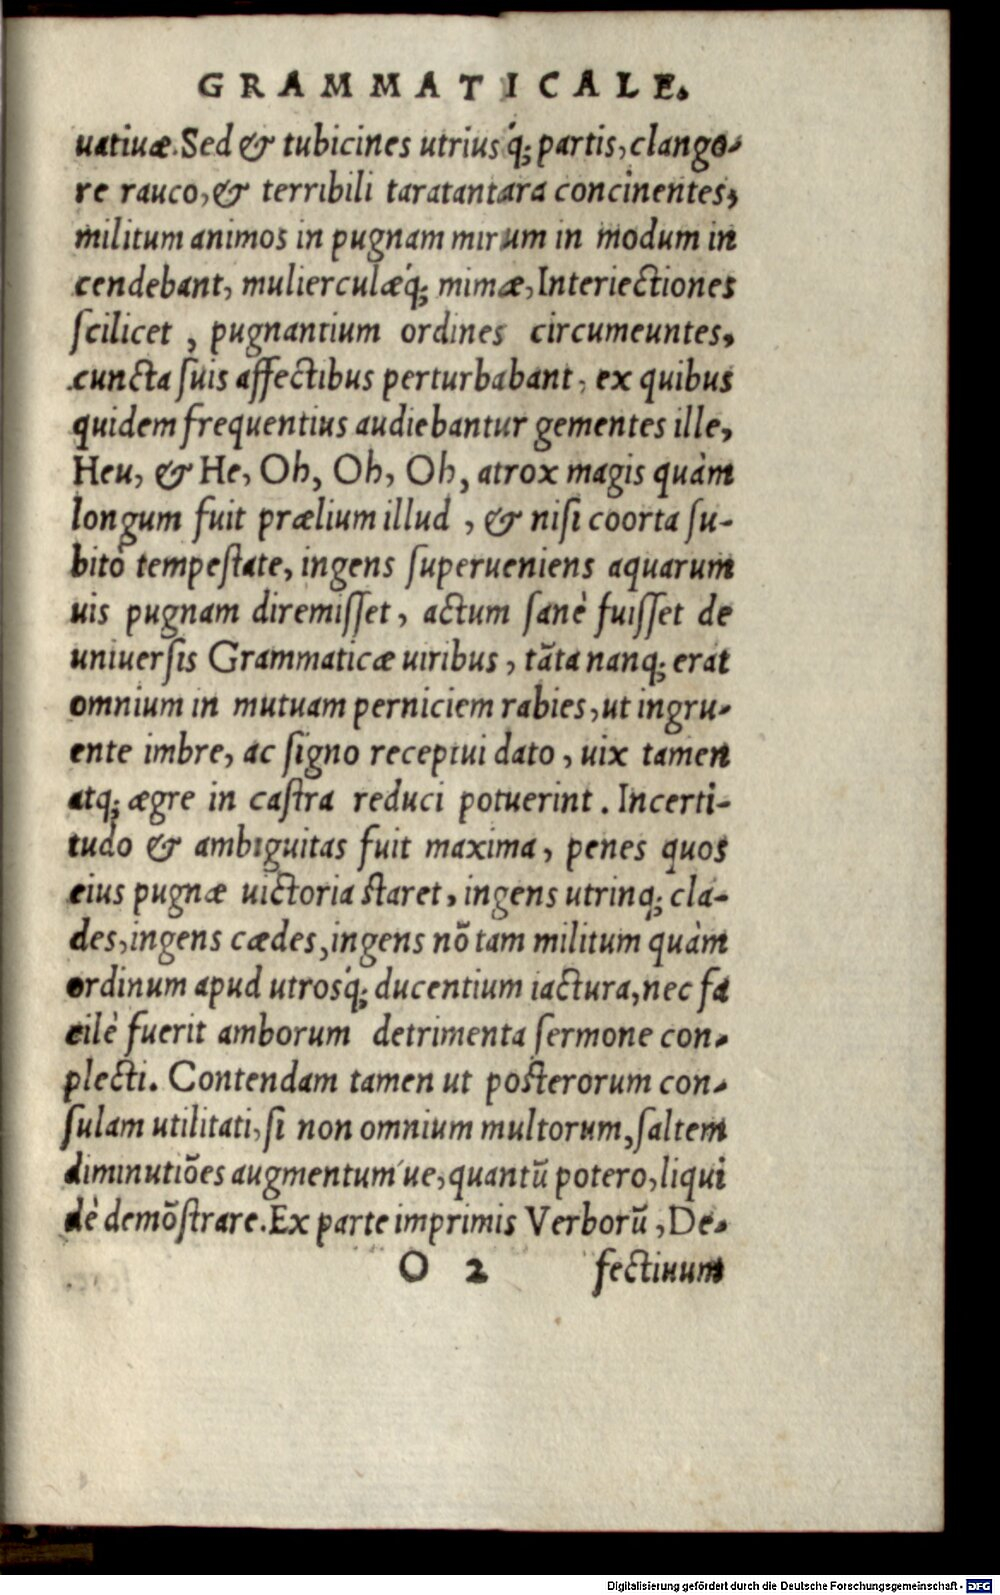 GRAMMATICALE.
uatiuæ. Sed & tubicines utriusq́; partis, clango-
re rauco, & terribili taratantara concinentes,
militum animos in pugnam mirum in modum in
cendebant, mulierculæq́; mimæ, Interiectiones
ſcilicet , pugnantium ordines circumeuntes,
cuncta ſuis affectibus perturbabant, ex quibus
quidem frequentius audiebantur gementes ille,
Heu, & He, Oh, Oh, Oh, atrox magis quàm
longum fuit prælium illud , & niſi coorta ſu-
bitò tempeſtate, ingens ſuperueniens aquarum
uis pugnam diremiſſet, actum ſanè fuiſſet de
uniuerſis Grammaticæ uiribus, tāta nanq; erat
omnium in mutuam perniciem rabies, ut ingru-
ente imbre, ac ſigno receptui dato, uix tamen
atq; ægre in caſtra reduci potuerint. Incerti-
tudo & ambiguitas fuit maxima, penes quos
eius pugnæ uictoria ſtaret, ingens utrinq; cla-
des, ingens cædes, ingens nō tam militum quàm
ordinum apud utrosq́; ducentium iactura, nec fa
cilè fuerit amborum detrimenta ſermone con-
plecti. Contendam tamen ut poſterorum con-
ſulam utilitati, ſi non omnium multorum, ſaltem
diminutiōes augmentum´ue, quantū potero, liqui
dè demōſtrare. Ex parte imprimis Verborū, De-
O 2 fectiuum
Digitalisierung gefördert durch die Deutsche Forschungsgemeinschaft - DFG